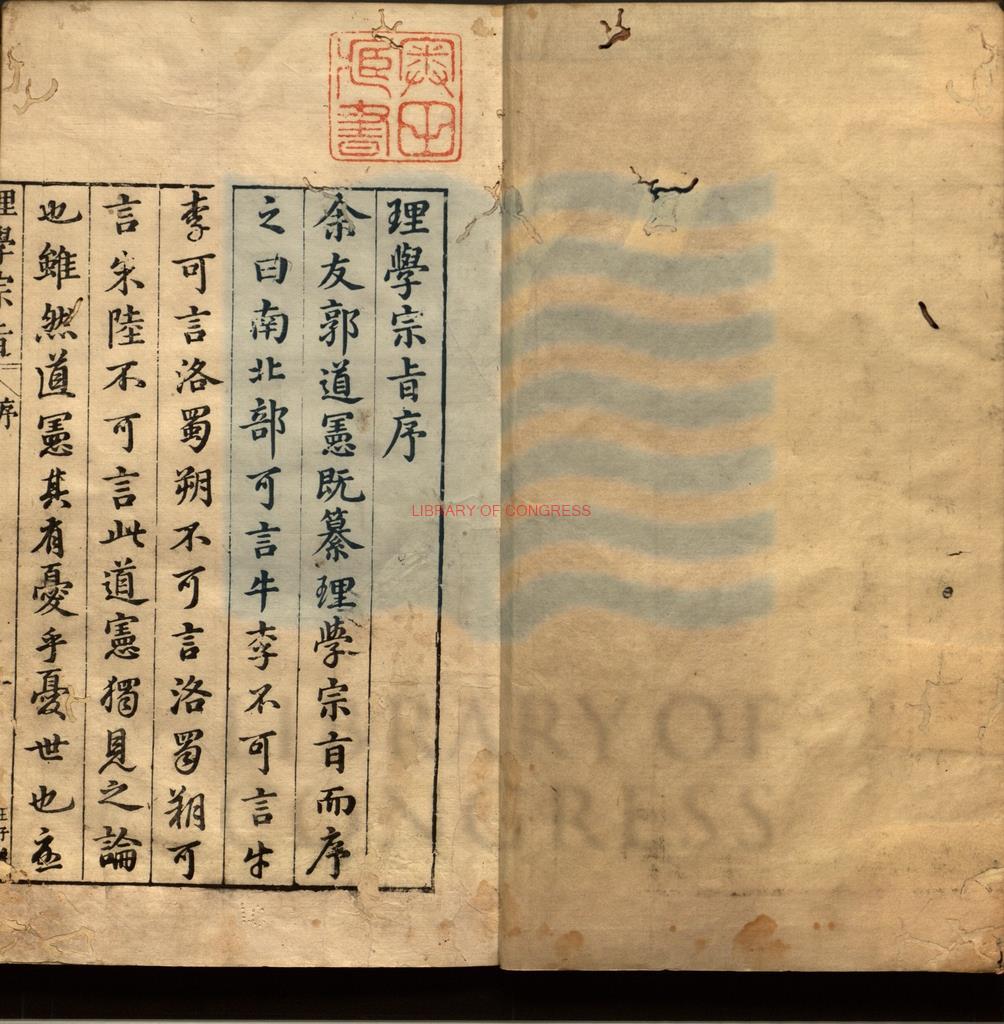 奧田
臧書
理學宗㫖序
余友郭道憲既纂理學宗㫖而序
之曰南北部可言牛李不可言牛
李可言洛蜀朔不可言洛蜀朔可
言朱陸不可言此道憲獨見之論
也雖然道憲其有憂乎憂世也
理學宗㫖
序
一
LIBRARY OF CONGRESS
LIBRARY OF
CONGRESS